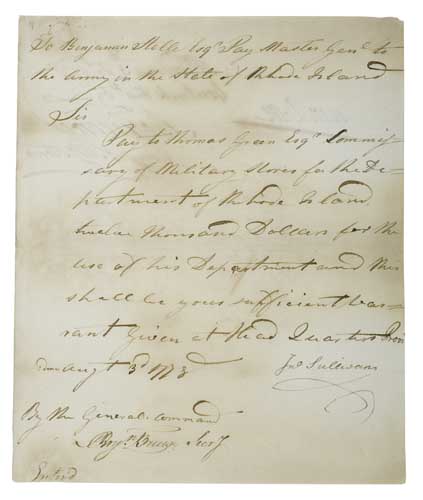 To Benjamin Stelle Esqr Pay Master Genl to
the Army in the State of Rhode Island
Sir
Pay to Thomas Green Esqr Commis-
sary of Military Stores for the De-
partment of Rhode Island
twelve thousand Dollars for the
use of his Department and this
shall be your sufficient War-
rant Given at Head Quarters Provi
dence Augt 3d 1778
Jno Sullivan
By the Generals command
Secy
Enterd